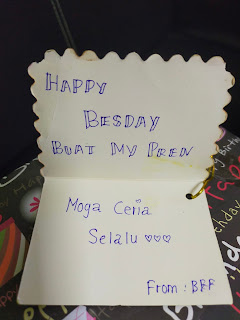 HAPPY
BESDAY
BUAT MY PREN
Moga Ceria
Selalu ♡♡♡
From : BFF